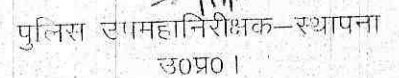 पुलिस उपमहानिरीक्षक—स्थापना
उ०प्र० ।